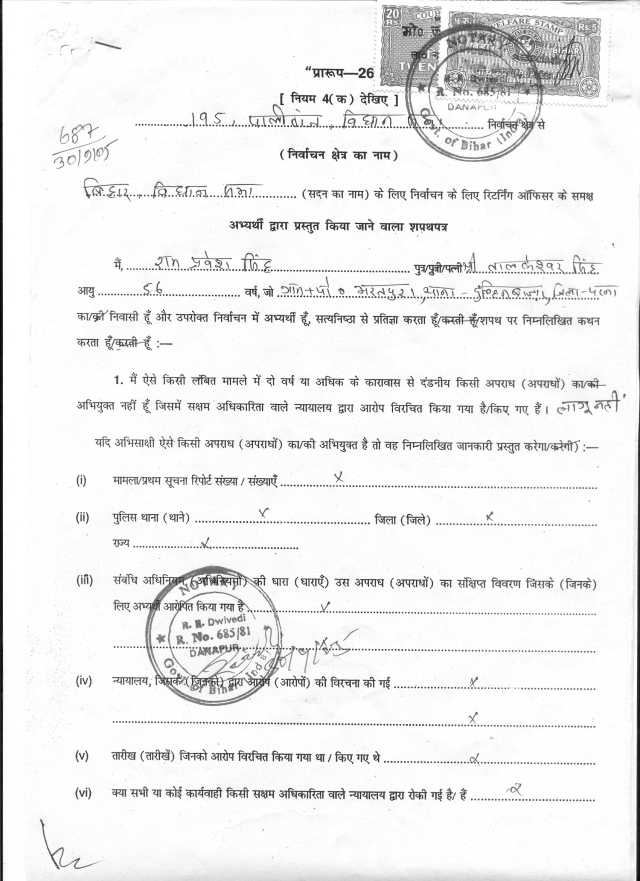 20 RS
COU
TWEN
WELFARE STAMP
RS 5
मो०
NOTARY
R. R. Dwivedi
R. No. 685/81
DANAPUR
Govt. of Bihar (Ind
"प्रारूप—26
[ नियम 4(क) देखिए ]
195, पालीगंज, विधान निर्वाचन क्षेत्र से
687
30/9/05
(निर्वाचन क्षेत्र का नाम)
बिहार, विधान सभा (सदन का नाम) के लिए निर्वाचन के लिए रिटर्निंग ऑफिसर के समक्ष
अभ्यर्थी द्वारा प्रस्तुत किया जाने वाला शपथपत्र
मैं, राम प्रवेश सिंह पुत्र/पुत्री/पत्नी श्री तालकेश्वर सिंह
आयु 56 वर्ष, जो ग्राम+पो० भरतपुरा, थाना - दुल्हिनबाजार, जिला-पटना
का/की निवासी हूँ और उपरोक्त निर्वाचन में अभ्यर्थी हूँ, सत्यनिष्ठा से प्रतिज्ञा करता हूँ/करती हूँ/शपथ पर निम्नलिखित कथन
करता हूँ/करती हूँ :—
1. मैं ऐसे किसी लंबित मामले में दो वर्ष या अधिक के कारावास से दंडनीय किसी अपराध (अपराधों) का/की
अभियुक्त नहीं हूँ जिसमें सक्षम अधिकारिता वाले न्यायालय द्वारा आरोप विरचित किया गया है/किए गए हैं। लागू नहीं
यदि अभिसाक्षी ऐसे किसी अपराध (अपराधों) का/की अभियुक्त है तो वह निम्नलिखित जानकारी प्रस्तुत करेगा/करेगी) :—
(i) मामला/प्रथम सूचना रिपोर्ट संख्या / संख्याएँ x
(ii) पुलिस थाना (थाने) x जिला (जिले) x
राज्य x
(iii) संबंधि अधिनियम, (अधिनियमों) की धारा (धाराएँ) उस अपराध (अपराधों) का संक्षिप्त विवरण जिसके (जिनके)
लिए अभ्यर्थी आरोपित किया गया है x
NOTARY
R. R. Dwivedi
R. No. 685/81
DANAPUR
Govt. of Bihar (Ind
(iv) न्यायालय, जिसके (जिनके) द्वारा आरोप (आरोपों) की विरचना की गई x
x
(v) तारीख (तारीखें) जिनको आरोप विरचित किया गया था / किए गए थे x
(vi) क्या सभी या कोई कार्यवाही किसी सक्षम अधिकारिता वाले न्यायालय द्वारा रोकी गई है/ हैं x